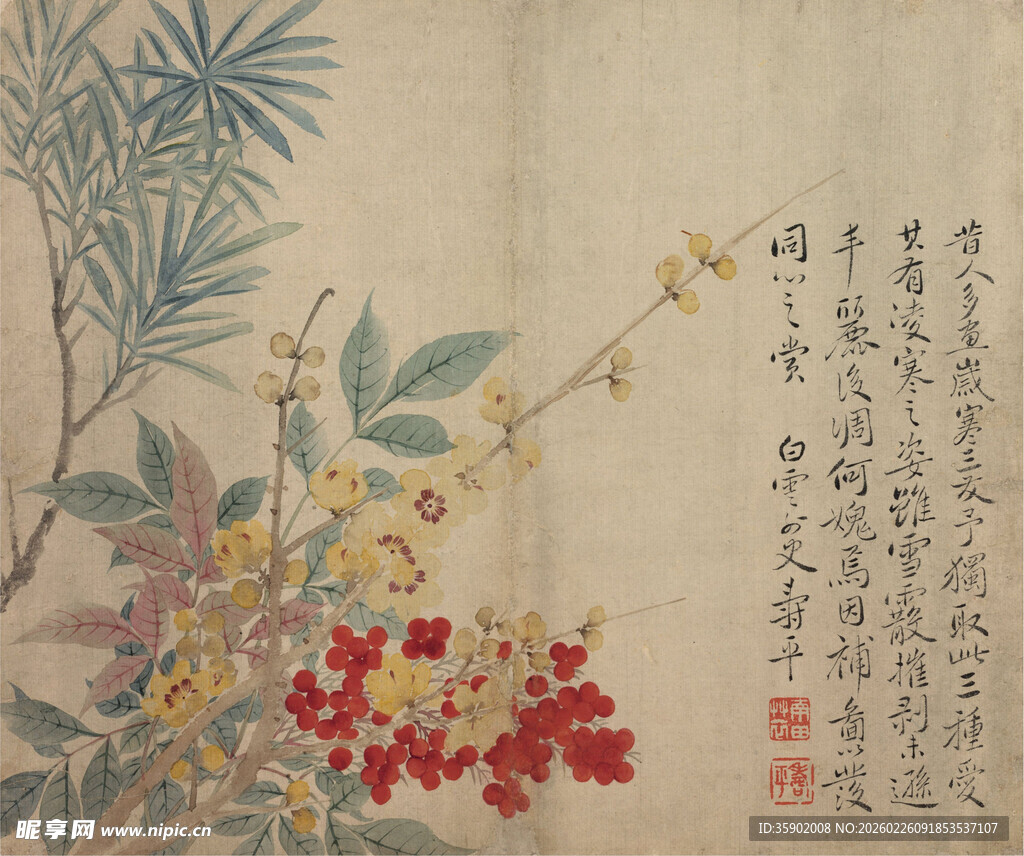 昔人多畫歲寒三友予獨取此三種愛
其有凌寒之姿雖雪霰摧剥未遜
丰麗後凋何媿焉因補意以發
同心之賞
白雲外史壽平
南田
壽平
昵享网 www.nipic.cn
ID:35902008 NO:20260226091853537107